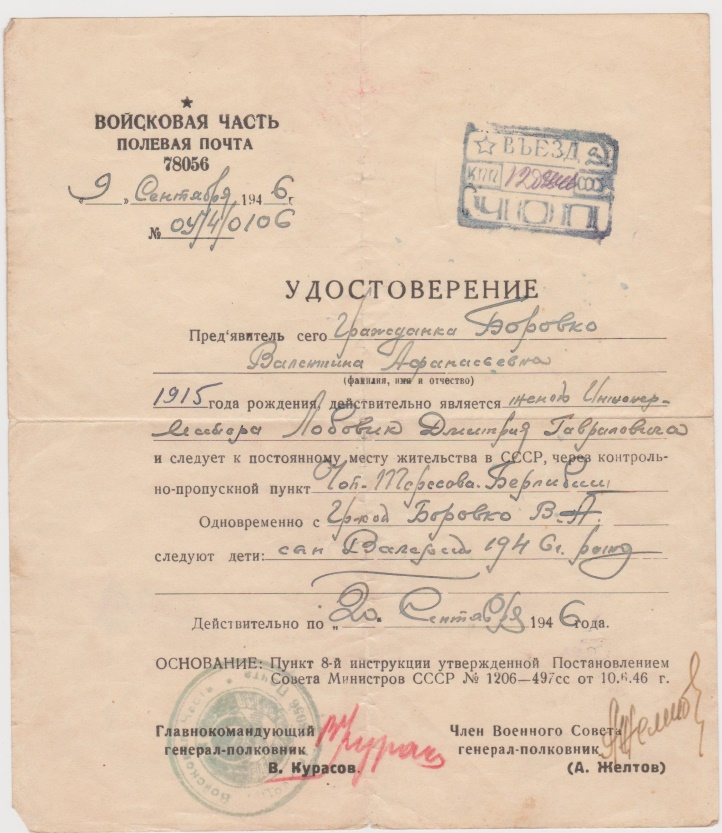 ВОЙСКОВАЯ ЧАСТЬ
ПОЛЕВАЯ ПОЧТА
78056
„9„ Сентября 1946г
№ 04/4/0106
ВЪЕЗД
КПП
ЧОП
УДОСТОВЕРЕНИЕ
Пред'явитель сего Гражданка Боровко
Валентина Афанасьевна
(фамилия, имя и отчество)
1915 года рождения, действительно является женой Инженер-
Майора Лобовик Дмитрия Гавриловича
и следует к постоянному месту жительства в СССР, через контроль-
но-пропускной пункт Чоп-
Одновременно с Гр-кой Боровко В.А.
следуют дети: сын Валерий 1946г. рожд
Действительно по „20„ Сентября 1946 года.
ОСНОВАНИЕ: Пункт 8-й инструкции утвержденной Постановлением
Совета Министров СССР № 1206—497сс от 10.6.46 г.
Главнокомандующий
генерал-полковник
В. Курасов.
Член Военного Совета
генерал-полковник
(А. Желтов)